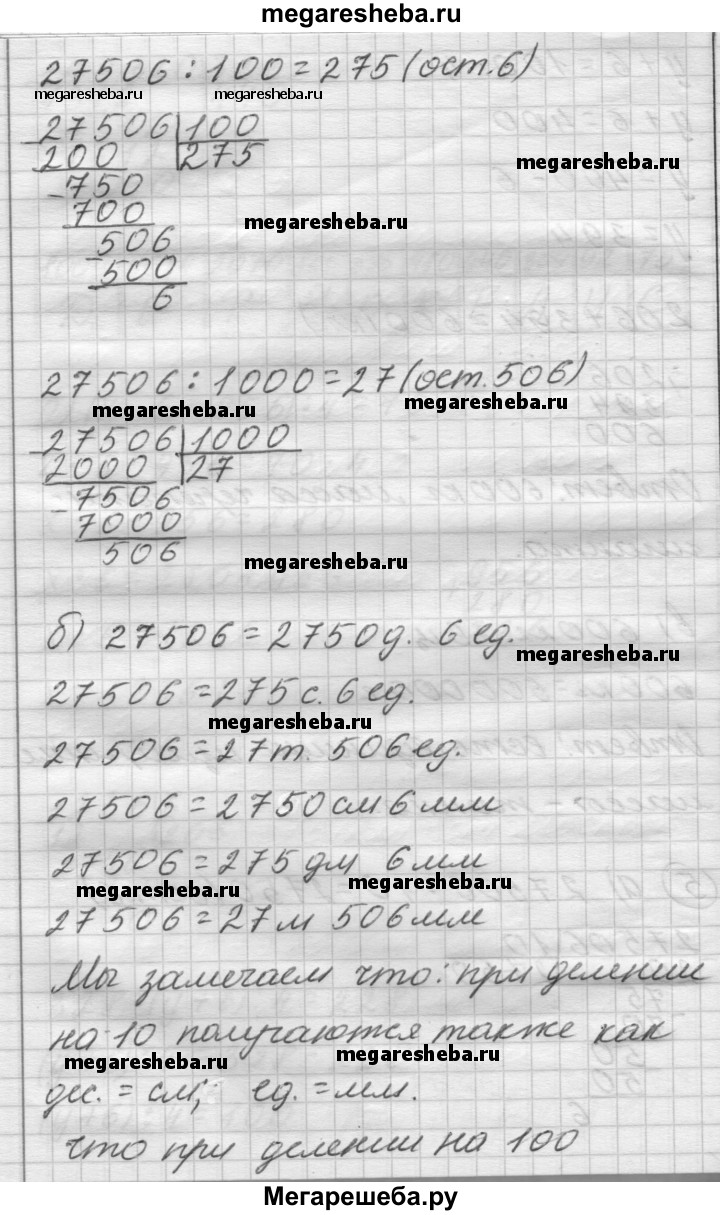 megaresheba.ru
27506 : 100 = 275 (ост. 6)
megaresheba.ru megaresheba.ru
27506 | 100
200 275
megaresheba.ru
- 750
700
megaresheba.ru
- 506
500
6
27506 : 1000 = 27 (ост. 506)
megaresheba.ru megaresheba.ru
- 27506 | 1000
2000 27
- 7506
7000
506
megaresheba.ru
б) 27506 = 2750д. 6 ед.
megaresheba.ru
27506 = 275 с. 6 ед.
megaresheba.ru
27506 = 27т. 506 ед.
27506 = 2750 см 6 мм
27506 = 275 дм 6 мм
megaresheba.ru megaresheba.ru
27506 = 27 м 506 мм
Мы замечаем что: при делении
на 10 получаются также как
megaresheba.ru megaresheba.ru
дес. = см; ед. = мм.
что при делении на 100
Мегарешеба.ру